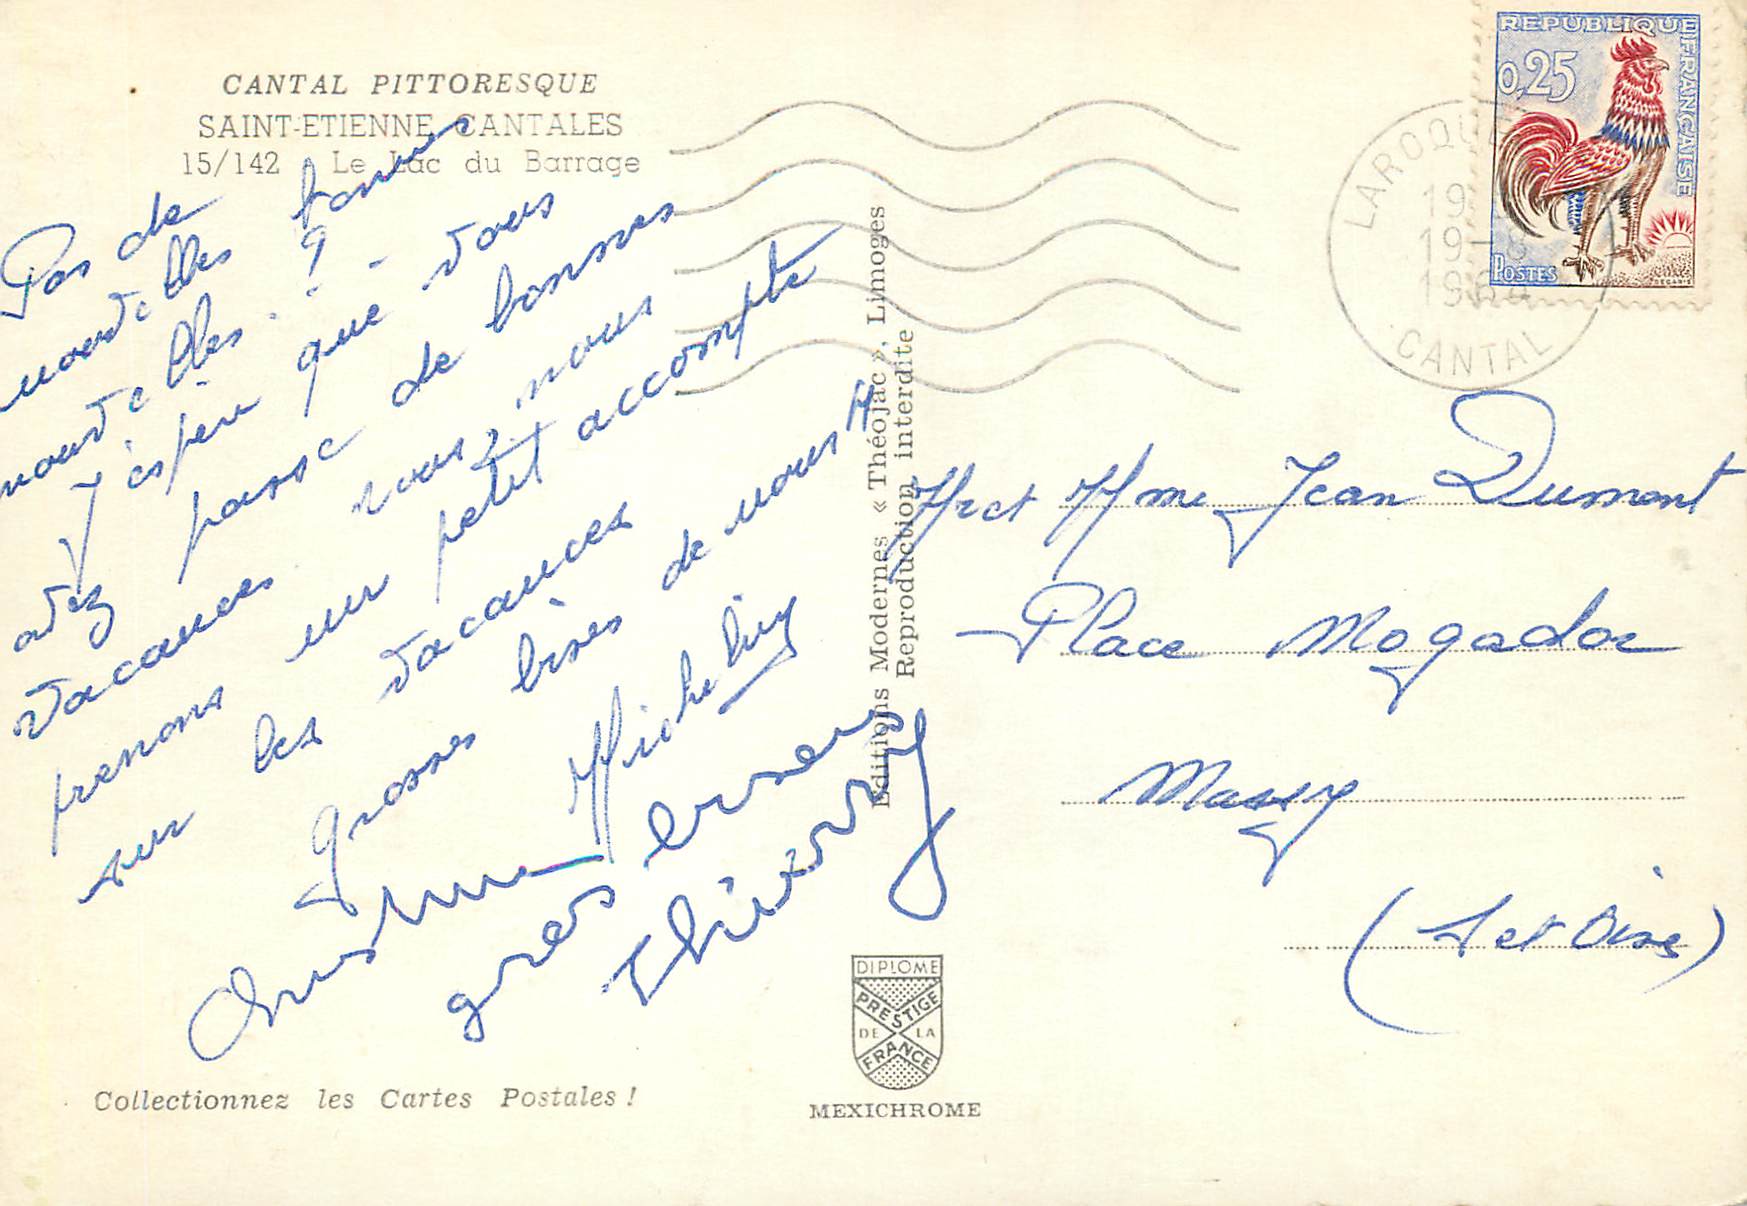 CANTAL PITTORESQUE
SAINT-ETIENNE CANTALES
15/142 Le Lac du Barrage
Pas de
nouvelles bonnes
nouvelles ?
J'espère que vous
avez passé de bonnes
vacances vous, nous
prenons un petit accompte
sur les vacances
Grosses bises de nous 4
Micheline
gros
Thierry
Collectionnez les Cartes Postales !
Editions Modernes « Théojac », Limoges
Reproduction interdite
DIPLOME
PRESTIGE
DE LA
FRANCE
MEXICHROME
REPUBLIQUE FRANÇAISE
0,25
POSTES
DECARIS
LAROQUE
19
19-8
196
CANTAL
Mr et Mme Jean Dumont
Place Mogador
Massy
(S et Oise)